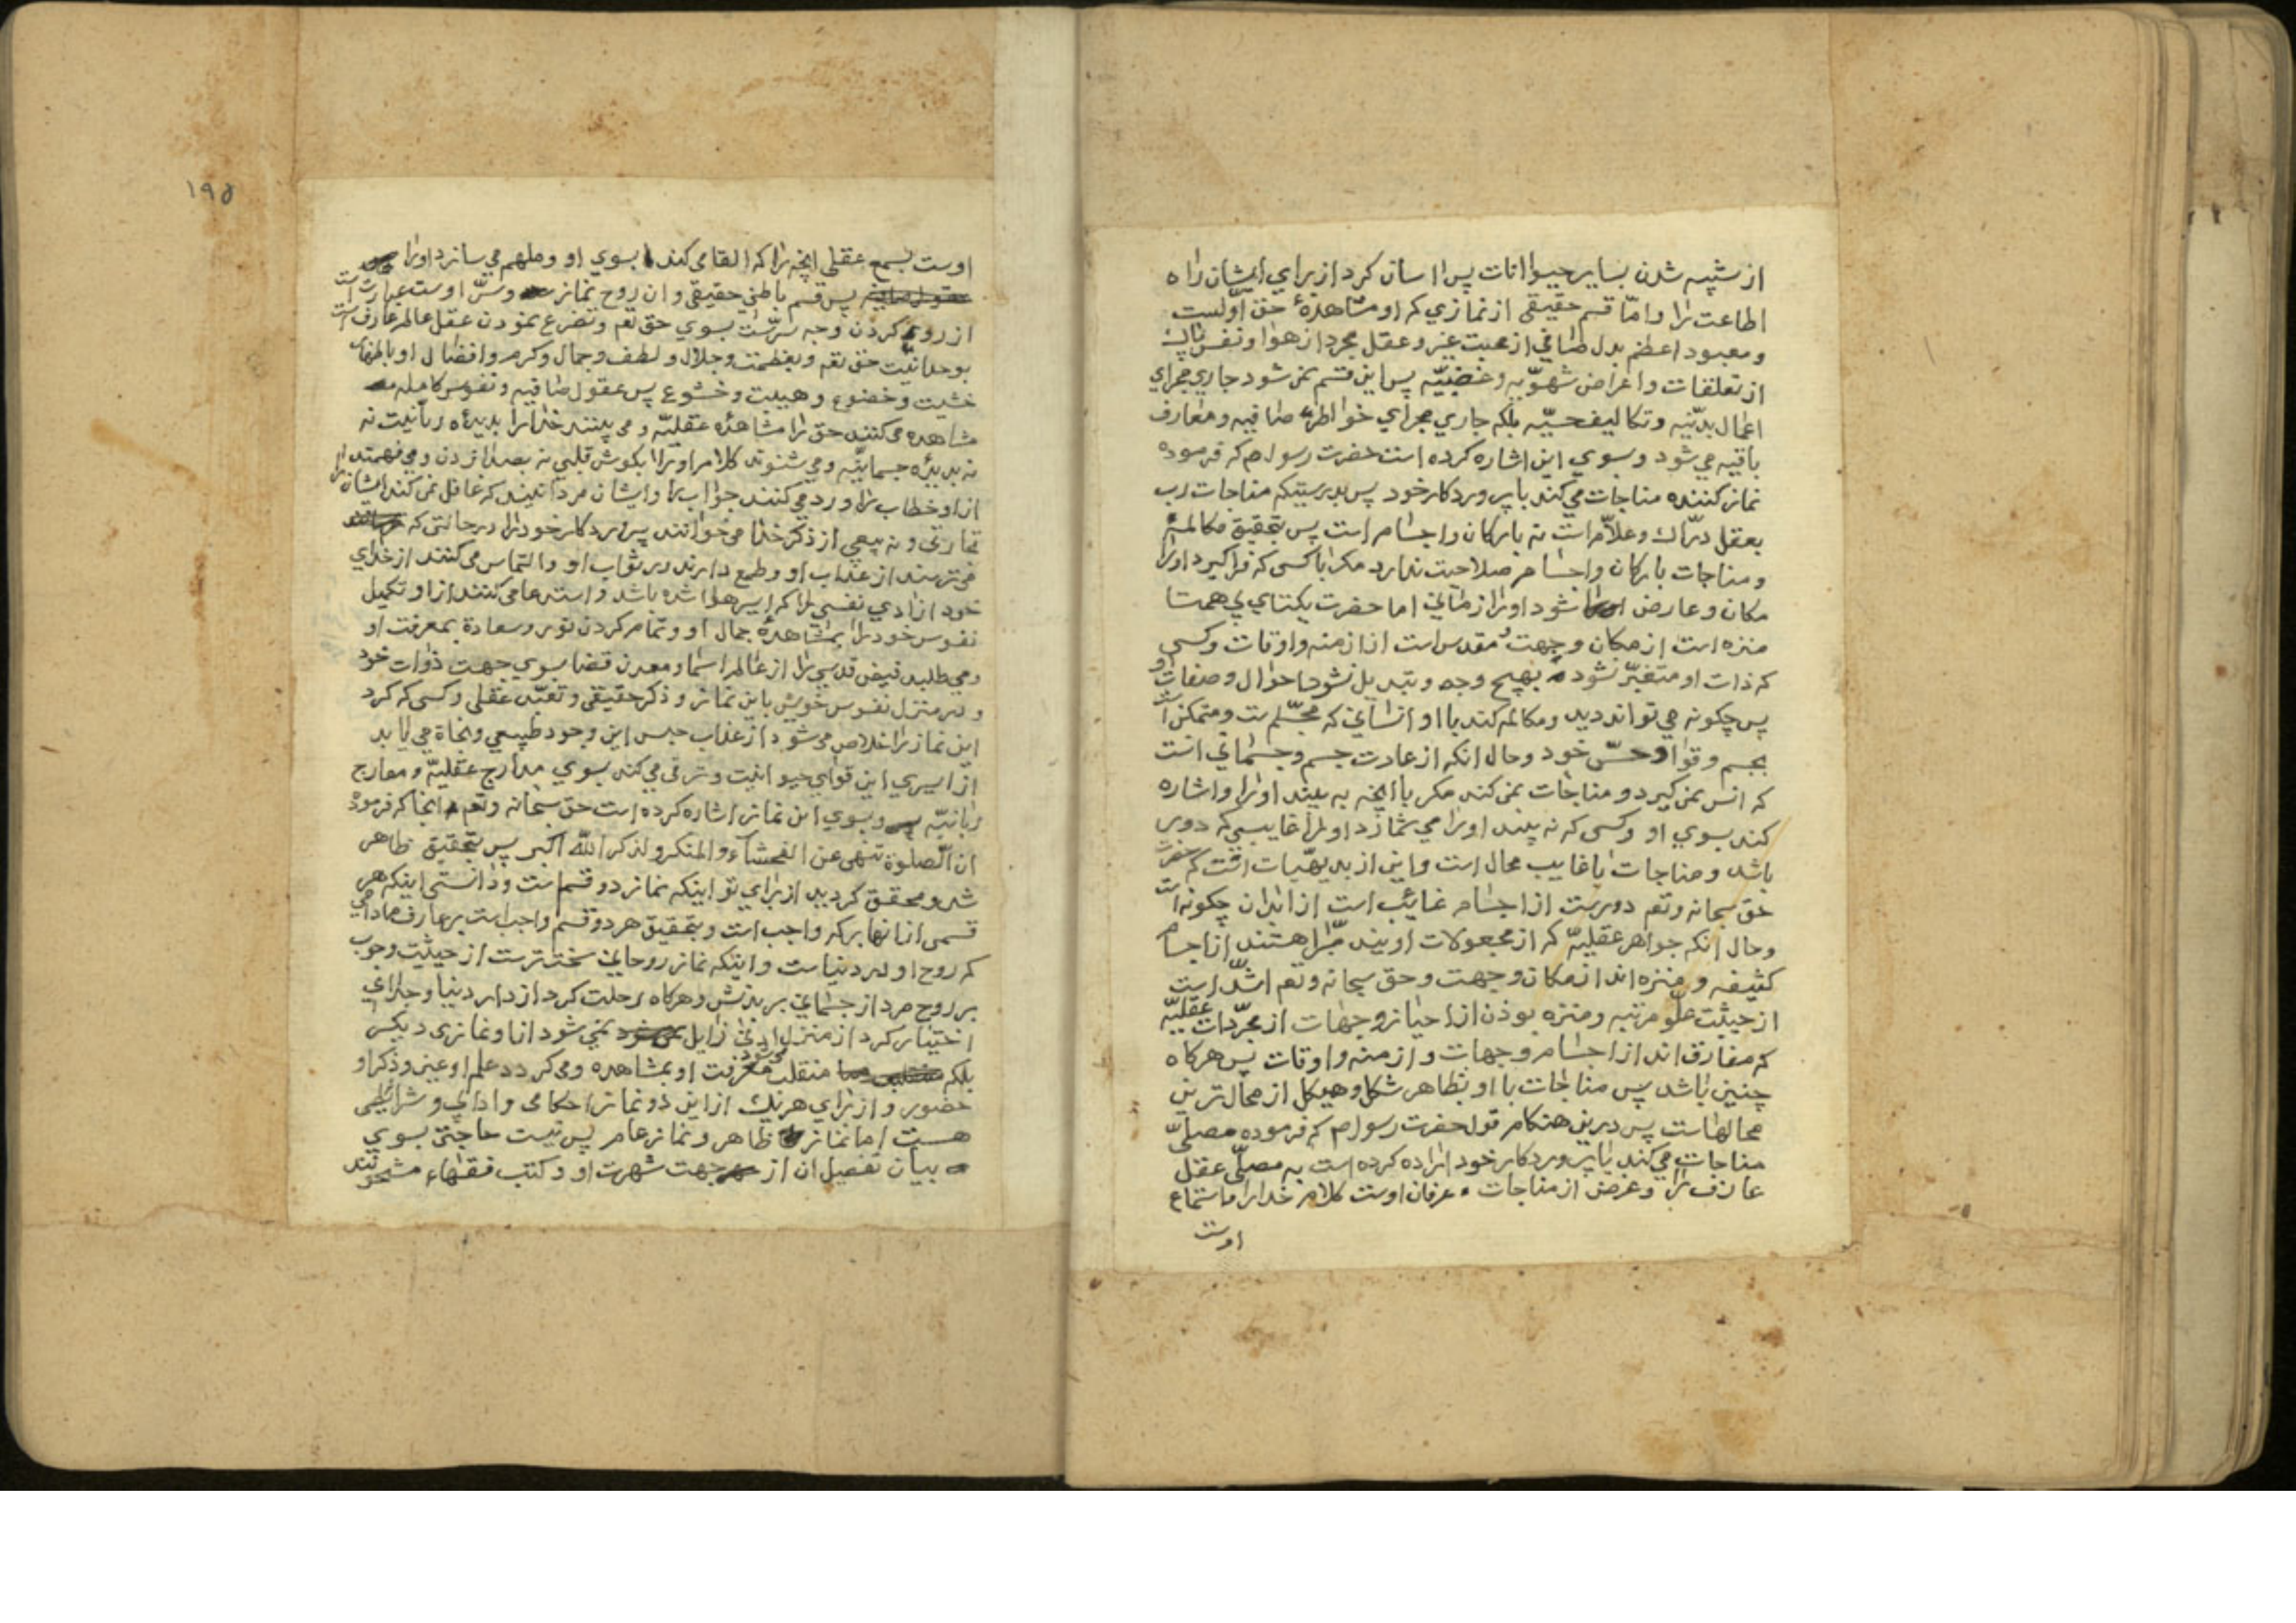 از شپیه شدن بسایر حیوانات پس اسان کرد از برای ایشان راه
اطاعت را و امّا قسم حقیقی از نمازی که او مشاهدهٔ حق اوّلست
و معبود اعظم بدل صافی از محبت غیر و عقل مجرد از هوا و نفس پاک
از تعلقات و اغراض شهوّیه و غضبیّه پس این قسم نمی شود جاری مجرای
اعمال بدنیّه و تکالیف حسیّه بلکه جاری مجرای خواطره صافیه و معارف
باقیه می شود و بسوی این اشاره کرده است حضرت رسول ص که فرموده
نماز کننده مناجات می کند با پروردکار خود پس بدرستیکه مناجات رب
بعقل درّاک و علاّم است نه بارکان و اجسام است پس بتحقیق مکالمهٔ
و مناجات بارکان و اجسام صلاحیت ندارد مکر با کسی که فرا کیرد او را
مکان و عارض شود او را زمانی اما حضرت یکتای بی همتا
منزه است از مکان و جهت و مقدس است از ازمنه و اوقات و کسی
که ذات او متغیّر نشود بهیچ وجه و تبدیل نشود احوال و صفات او
پس چکونه می تواند دید و مکالمه کند با او انسانی که مجسّم ست و متمکن است
بجسم و قوا و حسّ خود و حال انکه از عادت جسم و جسمانی است
که انس نمی کیرد و مناجات نمی کند مکر با انچه به بیند او را و اشاره
کند بسوی او و کسی که نه بیند او را می شمارد او را غایبی که دور
باشد و مناجات با غایب محال است و این از بدیهیّات است که حضرت
حق سبحانه و تعم دورست از اجسام غائب است از ابدان چکونه است
و حال انکه جواهر عقلیهّ که از مجعولات اویند مبّرا هستند از اجسام
کثیفه و منزه اند از مکان و جهت و حق سبحانه و تعم اشدّ است
از حیثت علو مرتبه و منزه بوذن از احیاز و جهات از مجرّدات عقلیّه
که مفارق اند از اجسام و جهات و ازمنه و اوقات پس هرکاه
چنین باشد پس مناجات با او بظاهر شکل و هیکل از محال ترین
محالهاست پس درین هنکام قول حضرت رسول ص که فرموده مصلّی
مناجات می کند با پروردکار خود اراده کرده است به مصلّی عقل
عارف را و غرض از مناجات عرفان اوست کلام خدا را باستماع
اوست
۱۹۵
اوست بسمع عقلی انچه را که القا می کند بسوی او و ملهم می سازد او را
پس قسم باطنی حقیقی و ان روح نماز و سّر اوست عبارت است
از روی کردن وجه سرّست بسوی حق تعم و تضرع نمودن عقل عالم عارف است
بوحدانیّت حق تعم و بعظمت و جلال و لطف و جمال و کرم و افضال او با نهایت
خشیت و خضوع و هیبت و خشوع پس عقول صافیه و نفوس کامله
مشاهده می کنند حق را مشاهدهٔ عقلیّه و می بینند خدا را بدیدهٔ ربانیت نه
نه بدیدهٔ جسمانیّه و می شنوند کلام او را بکوش قلبی نه بصدا زدن و می فهمند
از او خطاب را و رد می کنند جواب را و ایشان مردانیند که غافل نمی کند ایشان را
تجارتی و نه بیعی از ذکر خدا می خوانند پروردکار خود را در حالتی که
می ترسند از عذاب او و طمع دارند در ثواب او و التماس می کنند از خدای
خود ازادی نفسی را که اسیر هوا شده باشد و استدعا می کنند از او تکمیل
نفوس خود را بمشاهدهٔ جمال او و تمام کردن نور و سعادة بمعرفت او
و می طلبد فیض قدسی را از عالم اسما و معدن قضا بسوی جهت ذوات خود
و در منزل نفوس خویش باین نماز و ذکر حقیقی و تعبّد عقلی و کسی که کرد
این نماز را خلاص می شود از عذاب حبس این وجود طبیعی و نجاة می یابد
از اسیری این قوای حیوانیت و ترقی می کند بسوی مدارج عقلیّه و معارج
ربانیّه و بسوی این نماز اشاره کرده است حق سبحانه و تعم انجا که فرموده
ان الصّلوة تنهی عن الفحشاء و المنکر و لذکر اللّه اکبر پس بتحقیق ظاهر
شد و محقق کردید از برای تو اینکه نماز دو قسم است و دانستی اینکه هر
قسمی از انها بر که واجب است و بتحقیق هر دو قسم واجب است بر عارف مادامی
که روح او در دنیاست و اینکه نماز روحانی سخت ترست از حیثیت وجوب
بر روح مرد از جسمانی بر بدنش و هرکاه رحلت کرد از دار دنیا و جدای
اختیار کرد از منزل ادنی زایل نمی شود از او نمازی دیکر
بلکه منقلب می شود معرفت او بمشاهده و می کردد علم او عین و ذکر او
حضور و از برای هر یک از این دو نماز احکامی و ادابی و شرائطی
هست اما نماز ظاهر و نماز عام پس نیست حاجتی بسوی
بیان تفصیل ان از جهت شهرت او و کتب فقهاء مشحونند